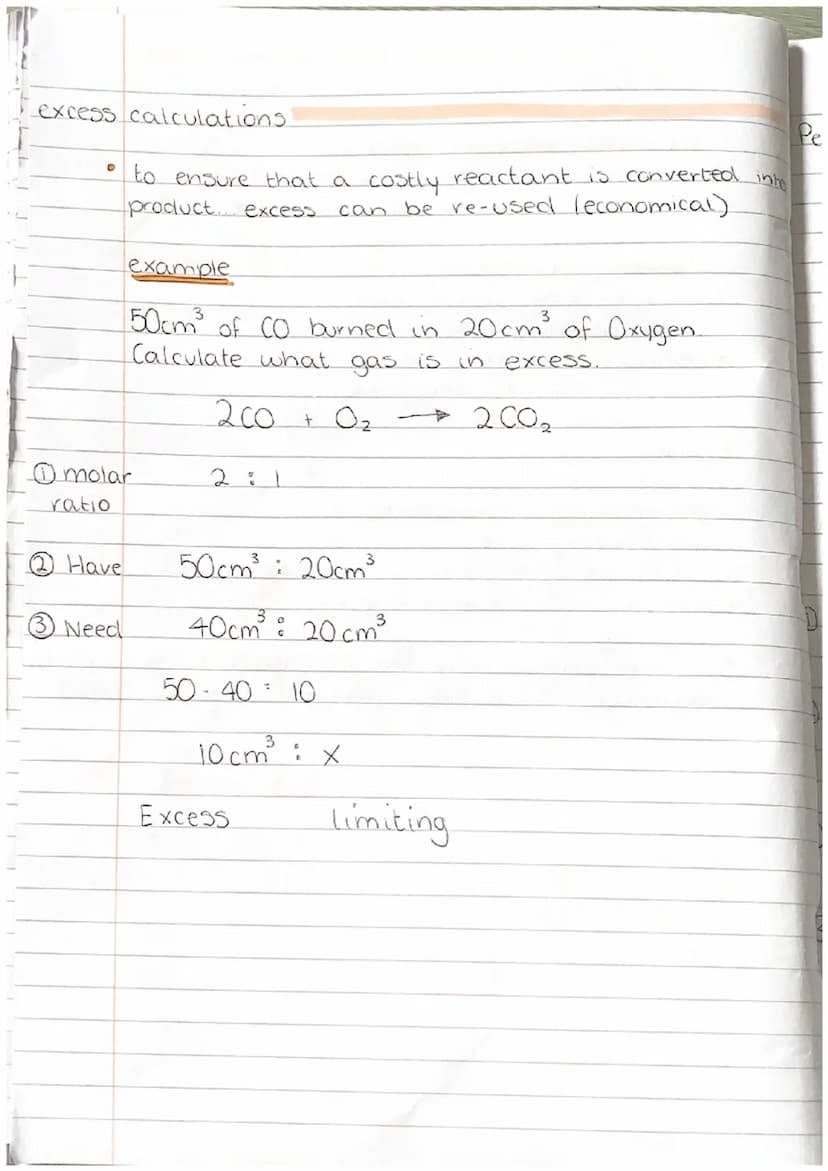 excess calculations
• to ensure that a costly reactant is converted into
product... excess can be re-used (economical)
example
50cm³ of CO burned in 20cm³ of Oxygen.
Calculate what gas is in excess.
2CO + O₂ → 2CO₂
① molar 2 : 1
ratio
② Have 50cm³ : 20cm³
③ Need 40cm³ : 20cm³
50 - 40 = 10
10cm³ : x
Excess limiting
Pe